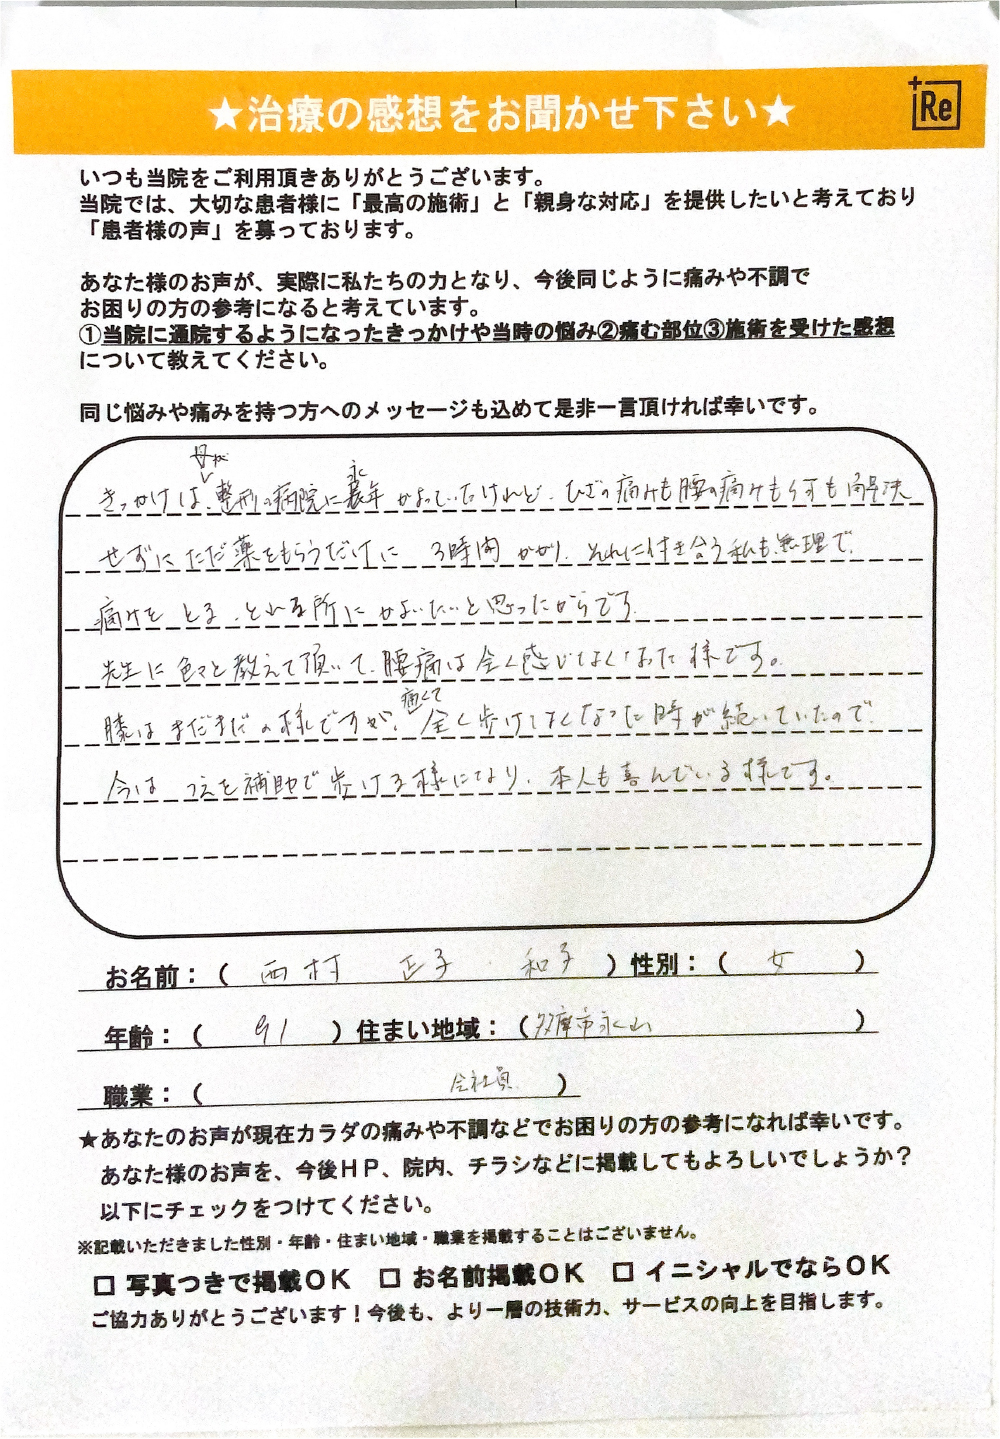 ★治療の感想をお聞かせ下さい★
+Re
いつも当院をご利用頂きありがとうございます。
当院では、大切な患者様に「最高の施術」と「親身な対応」を提供したいと考えており
「患者様の声」を募っております。
あなた様のお声が、実際に私たちの力となり、今後同じように痛みや不調で
お困りの方の参考になると考えています。
①当院に通院するようになったきっかけや当時の悩み②痛む部位③施術を受けた感想
について教えてください。
同じ悩みや痛みを持つ方へのメッセージも込めて是非一言頂ければ幸いです。
きっかけは、母が整形の病院に永年かよっていたけれど、ひざの痛みも腰の痛みも何も解決
せずにただ薬をもらうだけに 3時間かかり、それに付き合う私も無理で、
痛みを とる、とれる所にかよいたいと思ったからです
先生に色々と教えて頂いて、腰痛は全く感じなくなった様です。
膝はまだまだの様ですが、痛くて全く歩けしなくなった時が続いていたので、
今は つえを補助で歩ける様になり、本人も喜んでいる様です。
お名前：（ 西村 正子・和子 ）性別：（ 女 ）
年齢：（ 91 ）住まい地域：（多摩市永山 ）
職業：（ 会社員 ）
★あなたのお声が現在カラダの痛みや不調などでお困りの方の参考になれば幸いです。
あなた様のお声を、今後ＨＰ、院内、チラシなどに掲載してもよろしいでしょうか？
以下にチェックをつけてください。
※記載いただきました性別・年齢・住まい地域・職業を掲載することはございません。
□ 写真つきで掲載ＯＫ □ お名前掲載ＯＫ □ イニシャルでならＯＫ
ご協力ありがとうございます！今後も、より一層の技術力、サービスの向上を目指します。